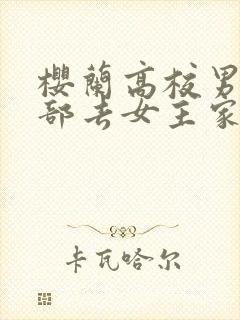 樱蘭高校男
部去女王家
卡瓦哈尔